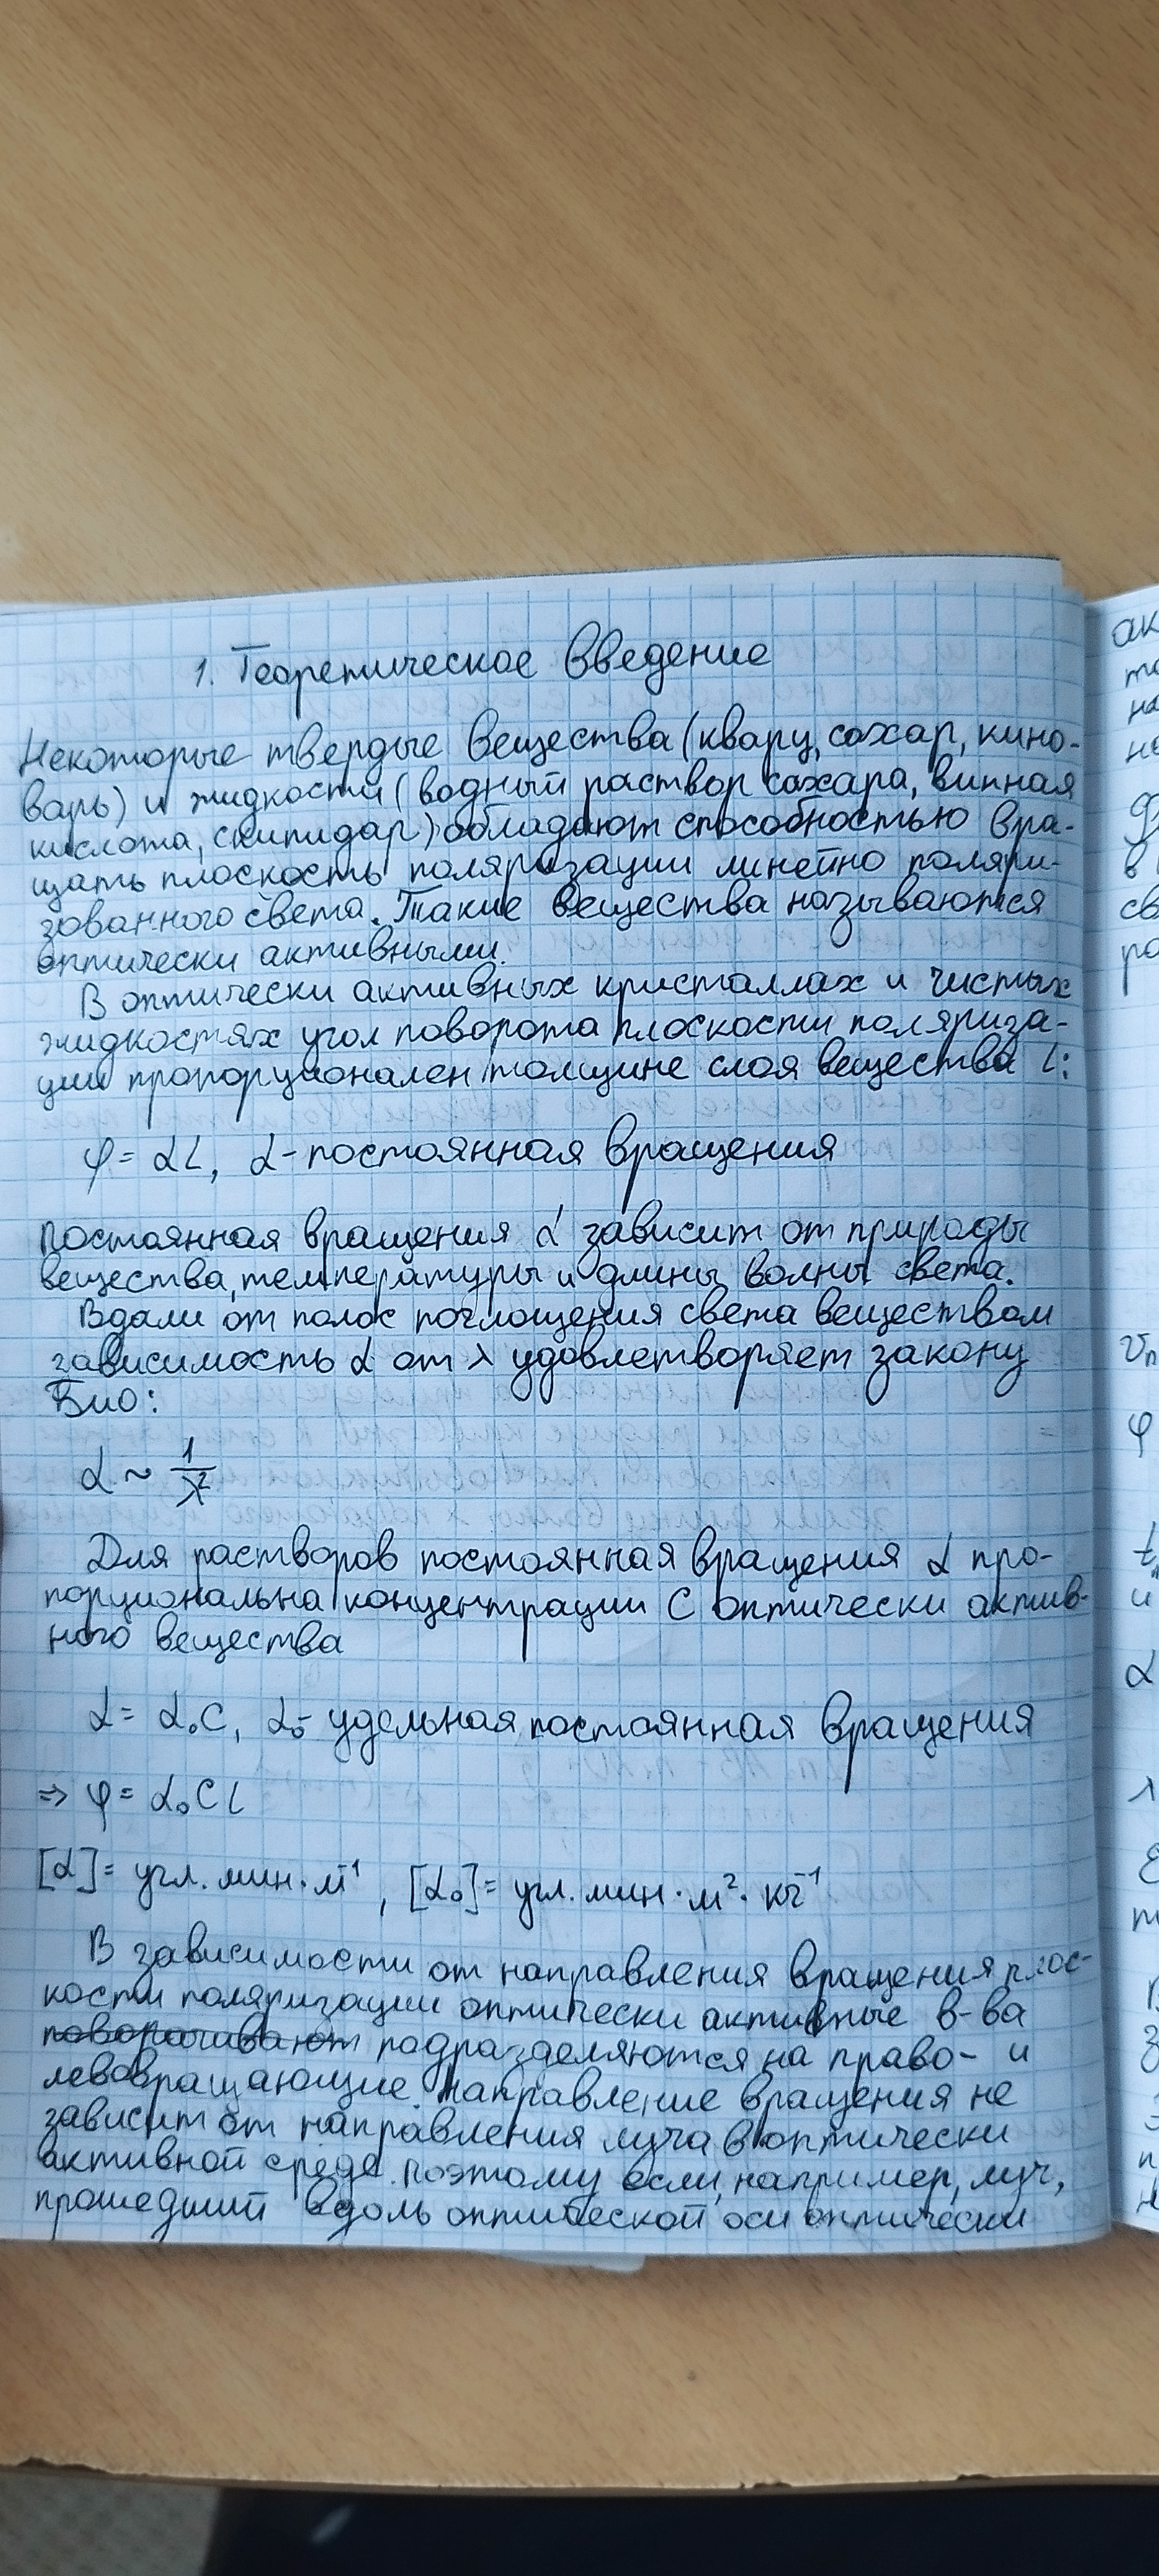 1. Теоретическое введение
Некоторые твердые вещества (кварц, сахар, кино-
варь) и жидкости (водный раствор сахара, винная
кислота, скипидар) обладают способностью вра-
щать плоскость поляризации линейно поляри-
зованного света. Такие вещества называются
оптически активными.
В оптически активных кристаллах и чистых
жидкостях угол поворота плоскости поляриза-
ции пропорционален толщине слоя вещества L:
φ = αL, α - постоянная вращения
Постоянная вращения α зависит от природы
вещества, температуры и длины волны света.
Вдали от полос поглощения света веществом
зависимость α от λ удовлетворяет закону
Био:
α ~ 1/λ²
Для растворов постоянная вращения α про-
порциональна концентрации C оптически актив-
ного вещества
α = α₀C, α₀ - удельная постоянная вращения
⇒ φ = α₀CL
[α] = угл. мин · м⁻¹, [α₀] = угл. мин · м² · кг⁻¹
В зависимости от направления вращения плос-
кости поляризации оптически активные в-ва
поворачивают подразделяются на право- и
левовращающие. Направление вращения не
зависит от направления луча в оптически
активной среде. Поэтому если, например, луч,
прошедший вдоль оптической оси оптически